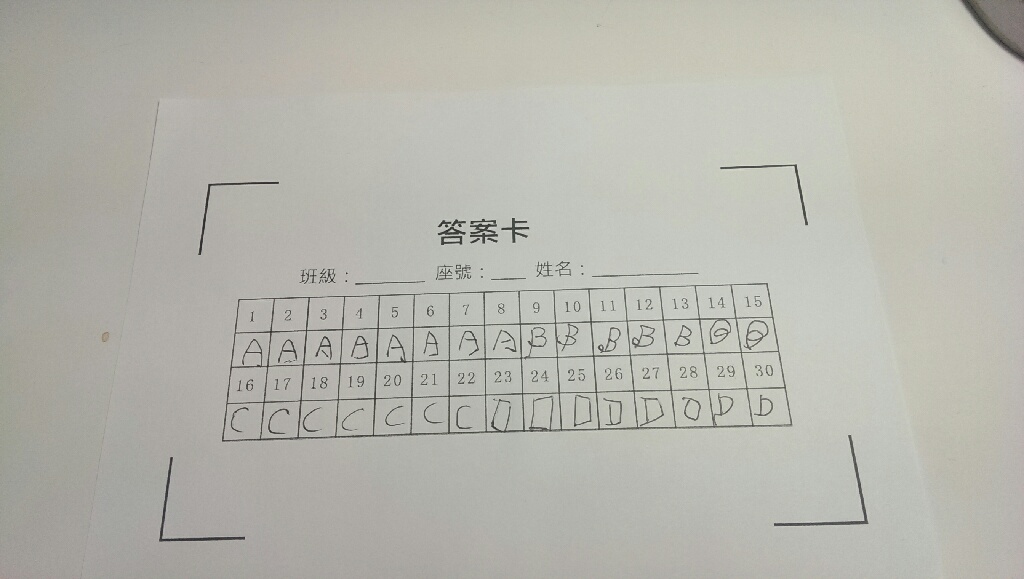 答案卡
班級：______ 座號：___ 姓名：_________
1 2 3 4 5 6 7 8 9 10 11 12 13 14 15
A A A A A A A A B B B B B B B
16 17 18 19 20 21 22 23 24 25 26 27 28 29 30
C C C C C C C D D D D D D D D